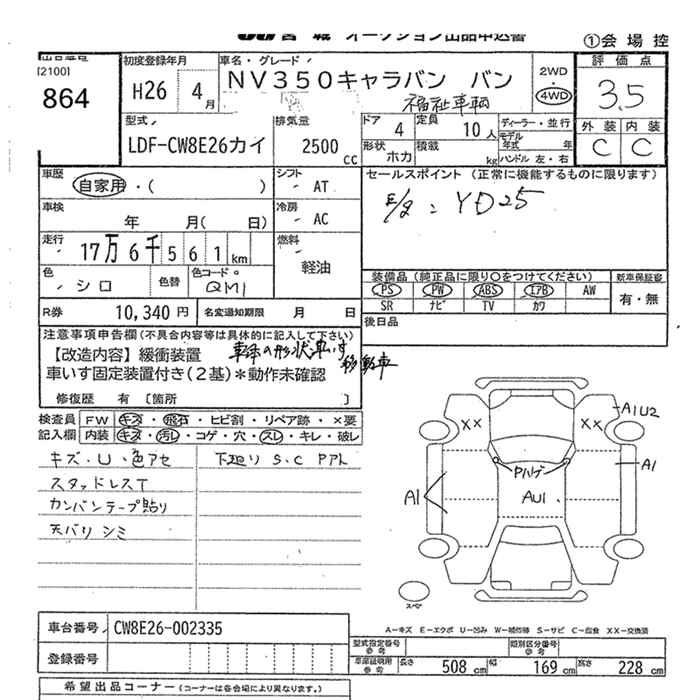 宮 城 オークション出品申込書
①会場控
出品番号
[2100]
864
初度登録年月
H26 4月
車名・グレード
NV350キャラバン バン
福祉車輌
2WD
4WD
評価点
3.5
外装 内装
C C
型式
LDF-CW8E26カイ
排気量
2500cc
ドア 4
定員 10人
形状 ホカ
積載 kg
ディーラー・並行
モデル年式 年
ハンドル 左・右
車歴
自家用・( )
シフト
AT
車検
年 月( 日)
冷房
AC
走行
17万6千561km
燃料
軽油
色
シロ
色替
色コード
QM1
R券 10,340円
名変通知期限 月 日
セールスポイント(正常に機能するものに限ります)
E/g: YD25
装備品(純正品に限り○をつけてください)
新車保証書
PS PW ABS エアB AW
SR ナビ TV カワ
有・無
後日品
注意事項申告欄(不具合内容等は具体的に記入して下さい)
【改造内容】緩衝装置 車体の形状車いす移動車
車いす固定装置付き(2基)*動作未確認
修復歴 有〔箇所 〕
検査員 FW キズ・飛石・ヒビ割・リペア跡・×要
記入欄 内装 キズ・汚レ・コゲ・穴・スレ・キレ・破レ
キズ・U・色アセ
下廻り S.C Pアト
スタッドレスT
カンバンテープ貼り
天バリ シミ
XX XX
A1U2
A1
Pハゲ
A1
AU1
スペア
車台番号 CW8E26-002335
登録番号
A-キズ E-エクボ U-凹み W-補修跡 S-サビ C-腐食 XX-交換済
型式指定番号 参考
類別区分番号 参考
車庫証明用 参考
長さ 508cm 幅 169cm 高さ 228cm
希望出品コーナー(コーナーは各会場により異なります。)